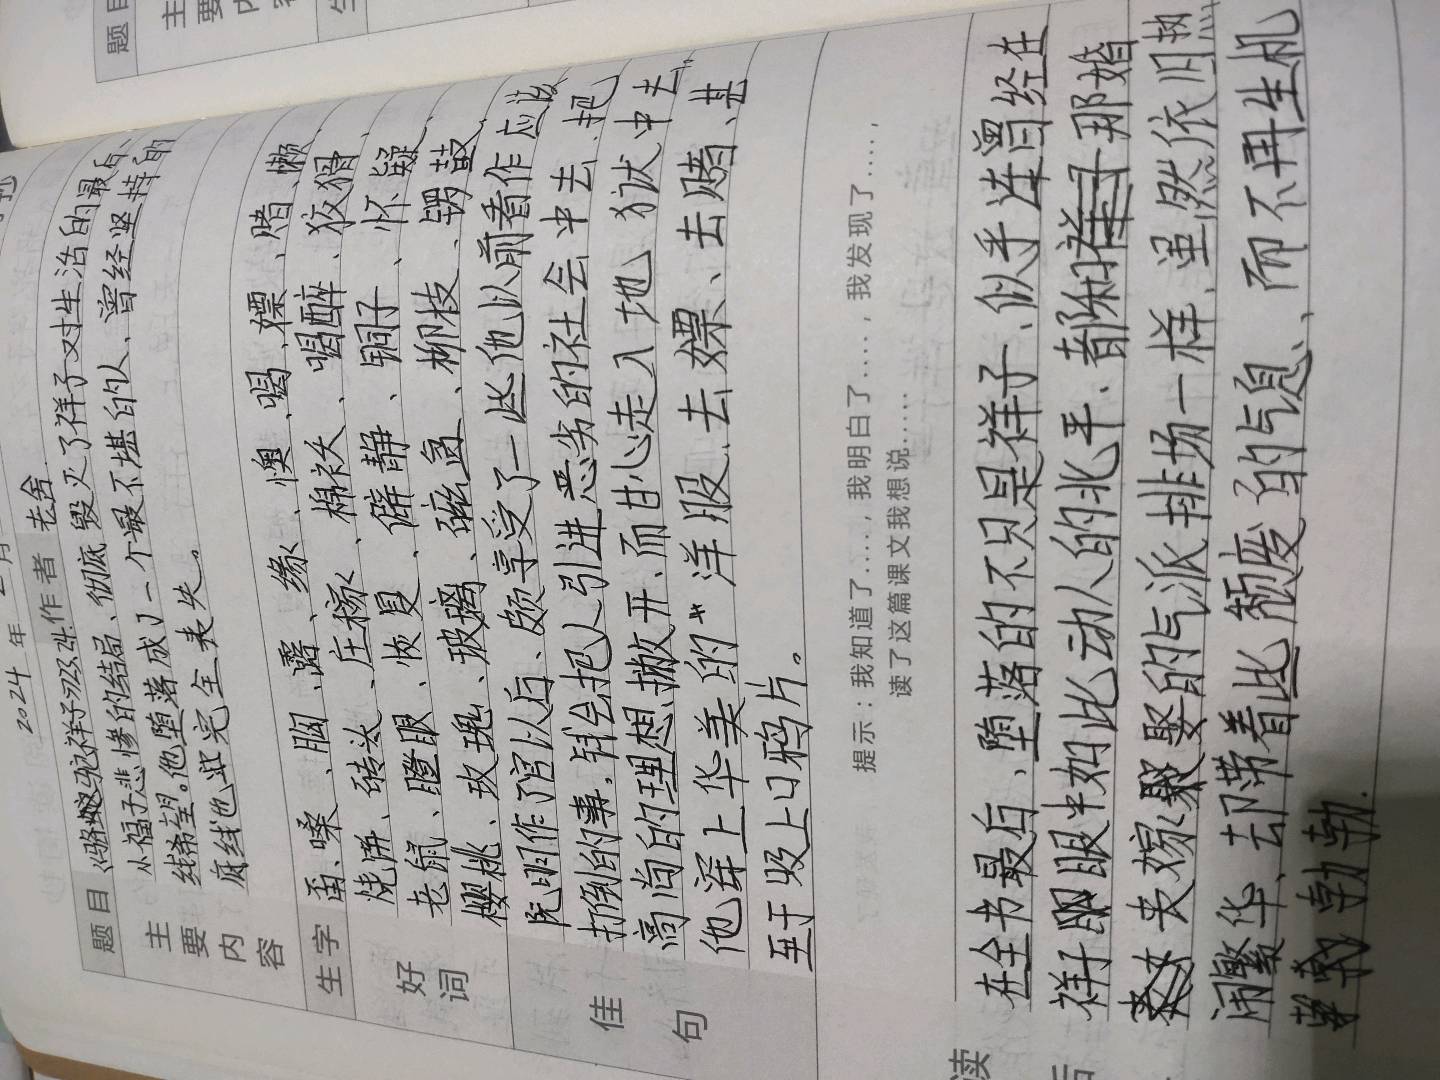 2024 年 月
题目 《骆驼祥子》 作者 老舍
主要内容
小福子悲惨的结局、彻底毁灭了祥子对生活的最后、
线希望。他堕落成了一个最不堪的人、曾经坚持的
底线也完全丧失。
生字
嗓、胸、露、缘、懊、喝、嫖、赌、懒、
好词
烧饼、砖头、庄稼、棉袄、喝醉、狡猾、
老鼠、瞪眼、恢复、僻静、铜子、怀疑、
樱桃、玫瑰、玻璃、磁盆、柳枝、锣鼓、
佳句
阮明作了官以后、颇享受了一些他以前看作应该
打倒的事。钱会把人引进恶劣的社会中去、把
高尚的理想撇开、而甘心走入地狱中去
他穿上华美的“洋服、去嫖、去赌、甚
至于吸上口鸦片。
提示：我知道了……，我明白了……，我发现了……，
读了这篇课文我想说……
读
后
在全书最后、堕落的不只是祥子、似乎连曾经在
祥子眼眼中如此动人的北平、都和祥子那婚
丧嫁娶的气派排场一样、虽然依旧热
闹繁华、却带着此颓废的气息、而不再生机
勃勃.
题目
主要内容
生